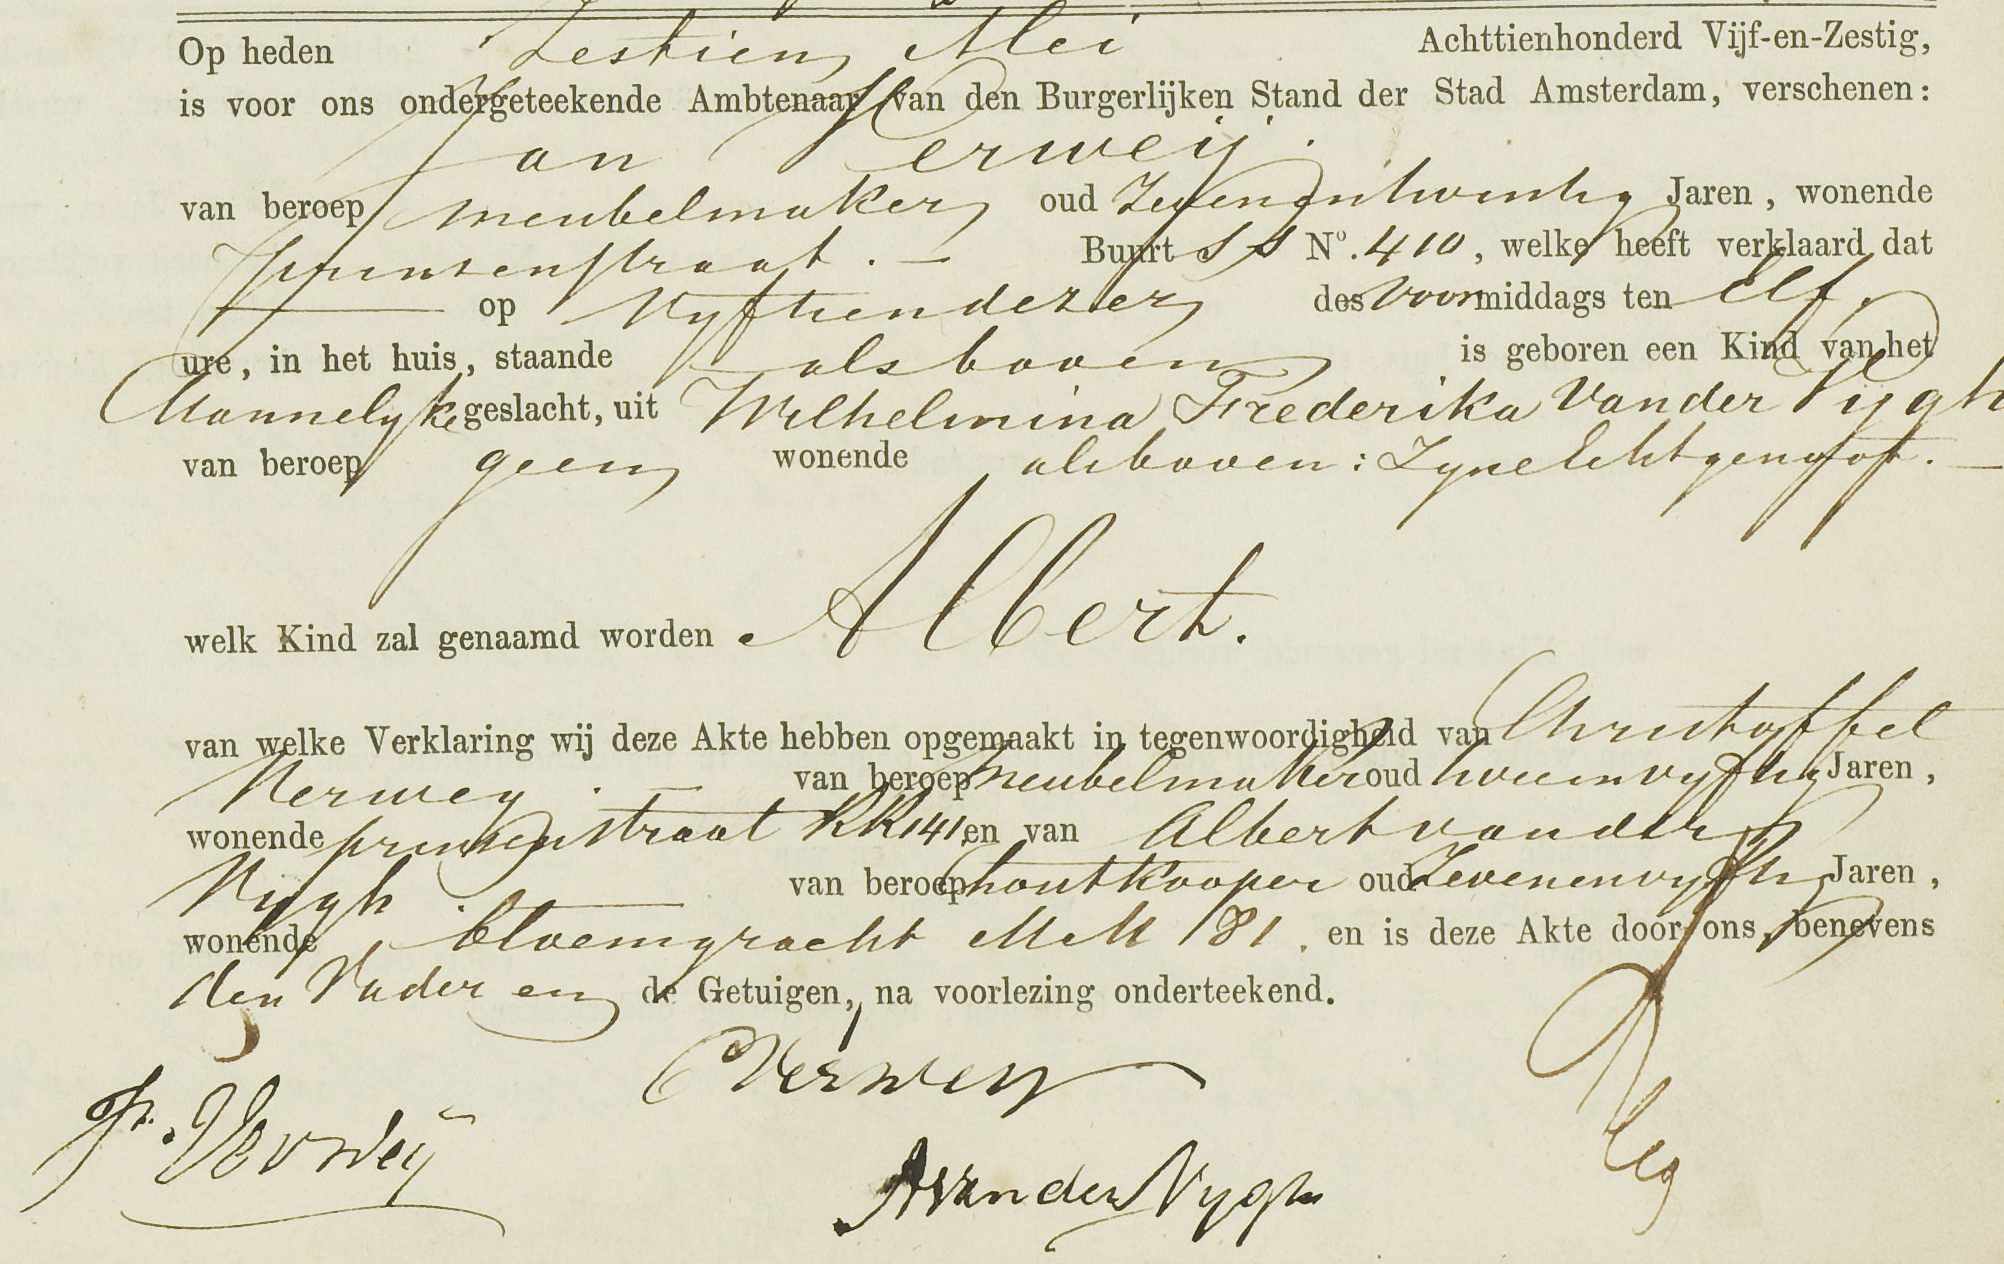 Op heden Zestien Mei Achttienhonderd Vijf-en-Zestig,
is voor ons ondergeteekende Ambtenaar van den Burgerlijken Stand der Stad Amsterdam, verschenen:
Jan Verweij.
van beroep meubelmaker oud Zevenentwintig Jaren, wonende
Prinsenstraat. — Buurt SS No. 410, welke heeft verklaard dat
— op Vyftiendezer des Voormiddags ten Elf.
ure, in het huis, staande alsboven is geboren een Kind van het
Mannelyke geslacht, uit Wilhelmina Frederika Vander Vygh
van beroep geen wonende alsboven: Zyne Echtgenoot. —
welk Kind zal genaamd worden Albert.
van welke Verklaring wij deze Akte hebben opgemaakt in tegenwoordigheid van Christoffel
Verwey. — van beroep meubelmaker oud tweeenvyftig Jaren,
wonende prinsenstraat KK 141 en van Albert vander
Vygh. — van beroep houtkooper oud Zevenenvyftig Jaren,
wonende bloemgracht MM 181. en is deze Akte door ons, benevens
den Vader en de Getuigen, na voorlezing onderteekend.
CVerweÿ
Jn. Verweÿ
AvanderVygh